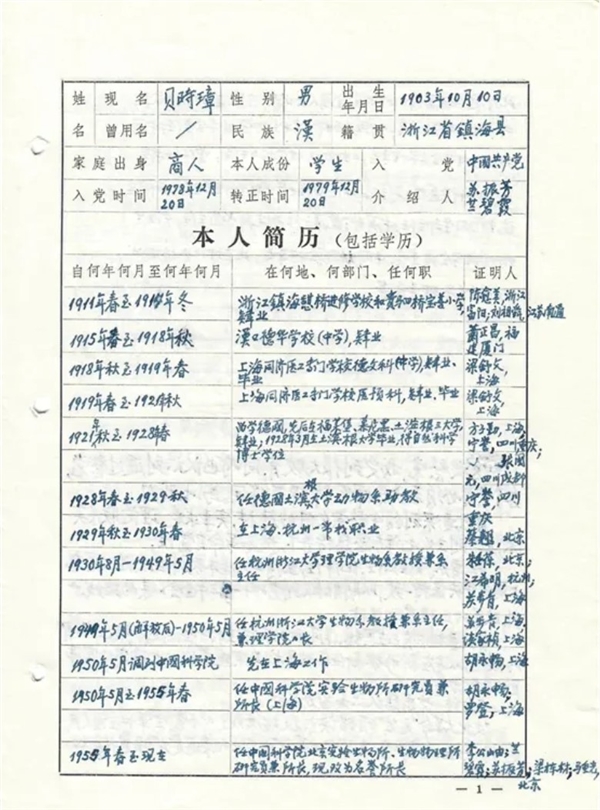 姓 现名 贝時璋 性别 男 出生年月日 1903年10月10日
名 曾用名 / 民族 漢 籍贯 浙江省鎮海县
家庭出身 商人 本人成份 学生 入党 中国共产党
入党时间 1978年12月20日 转正时间 1979年12月20日 介绍人 苏振芳 兰碧霞
本人简历（包括学历）
自何年何月至何年何月 在何地、何部门、任何职 证明人
1911年春至1914年冬 浙江镇海 进修学校和 宝善小学, 肄业
1915年春至1918年秋 漢口德华学校(中学), 肄业 萧正昌, 福建厦门
1918年秋至1919年春 上海同济医工专门学校德文科(中学)肄业、毕业 梁舒文, 上海
1919年春至1921年秋 上海同济医工专门学校医预科, 肄业, 毕业 梁舒文, 上海
1921年秋至1928年春 留学德国, 先后在福莱堡、慕尼黑、土滨根三大学肄业; 1928年3月在土滨根大学毕业, 得自然科学博士学位
1928年春至1929秋 任德国土滨根大学动物系助教 四川重庆
1929年秋至1930年春 在上海、杭州一带找职业 蔡翘, 北京
1930年8月-1949年5月 任杭州浙江大学理学院生物系教授兼系主任 北京; 江希明, 杭州; 上海
1949年5月(解放后)-1950年5月 任杭州浙江大学生物系教授兼系主任, 兼理学院院长 上海
1950年5月调到中国科学院 先在上海工作 胡永畅, 上海
1950年5月至1955年春 任中国科学院实验生物所研究员兼所长(上海) 胡永畅, 罗登, 上海
1955年春至现在 任中国科学院北京实验生物所、生物物理所研究员兼所长, 现改为名誉所长 李公岫; 兰碧霞; 苏振芳; 北京
— 1 —